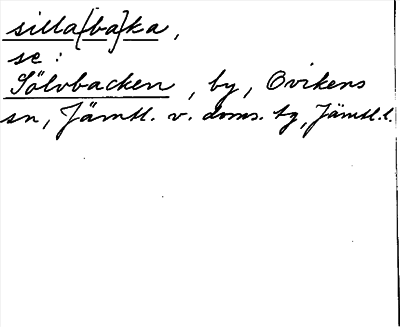 silla[ba]ka,
se:
Sölvbacken, by, Ovikens
sn, Jämtl. v. doms. tg, Jämtl. l.